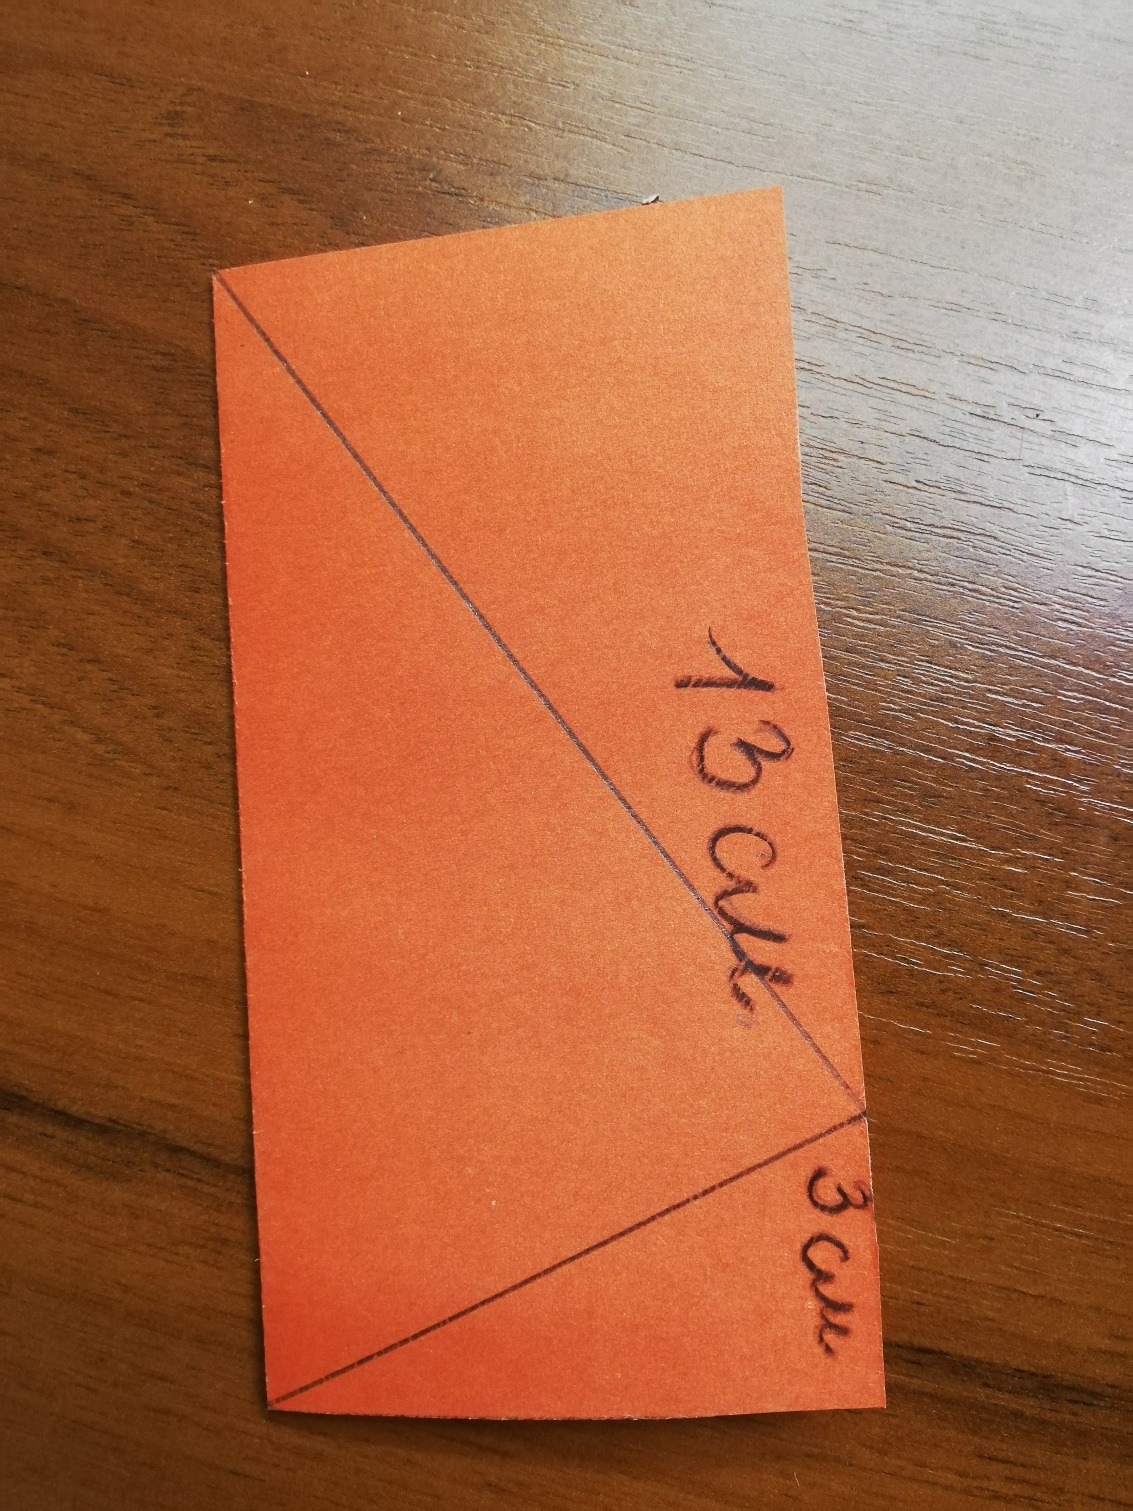 13 см.
3 см.